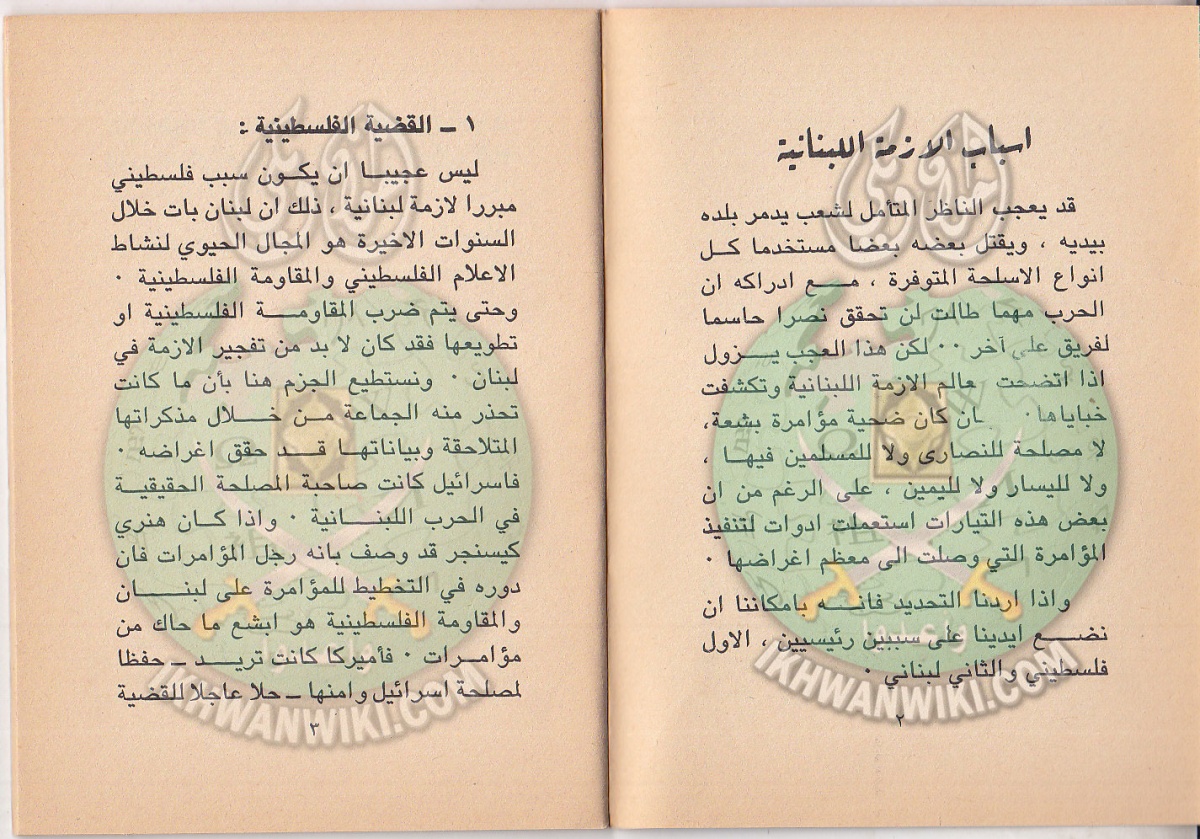 اسباب الازمة اللبنانية
قد يعجب الناظر المتأمل لشعب يدمر بلده
بيديه ، ويقتل بعضه بعضا مستخدما كل
انواع الاسلحة المتوفرة ، مع ادراكه ان
الحرب مهما طالت لن تحقق نصرا حاسما
لفريق على آخر ٠٠ لكن هذا العجب يزول
اذا اتضحت عالم الازمة اللبنانية وتكشفت
خباياها ٠ ان كان ضحية مؤامرة بشعة،
لا مصلحة للنصارى ولا للمسلمين فيها ،
ولا لليسار ولا لليمين ، على الرغم من ان
بعض هذه التيارات استعملت ادوات لتنفيذ
المؤامرة التي وصلت الى معظم اغراضها ٠
واذا اردنا التحديد فانه بامكاننا ان
نضع ايدينا على سببين رئيسيين ، الاول
فلسطيني والثاني لبناني ٠
٢
١ ـ القضية الفلسطينية :
ليس عجيبا ان يكون سبب فلسطيني
مبررا لازمة لبنانية ، ذلك ان لبنان بات خلال
السنوات الاخيرة هو المجال الحيوي لنشاط
الاعلام الفلسطيني والمقاومة الفلسطينية ٠
وحتى يتم ضرب المقاومة الفلسطينية او
تطويعها فقد كان لا بد من تفجير الازمة في
لبنان ٠ ونستطيع الجزم هنا بأن ما كانت
تحذر منه الجماعة من خلال مذكراتها
المتلاحقة وبياناتها قد حقق اغراضه ٠
فاسرائيل كانت صاحبة المصلحة الحقيقية
في الحرب اللبنانية ٠ واذا كان هنري
كيسنجر قد وصف بانه رجل المؤامرات فان
دوره في التخطيط للمؤامرة على لبنان
والمقاومة الفلسطينية هو ابشع ما حاك من
مؤامرات ٠ فأميركا كانت تريد ـ حفظا
لمصلحة اسرائيل وامنها ـ حلا عاجلا للقضية
٣
IKHWANWIKI.COM
IKHWANWIKI.COM